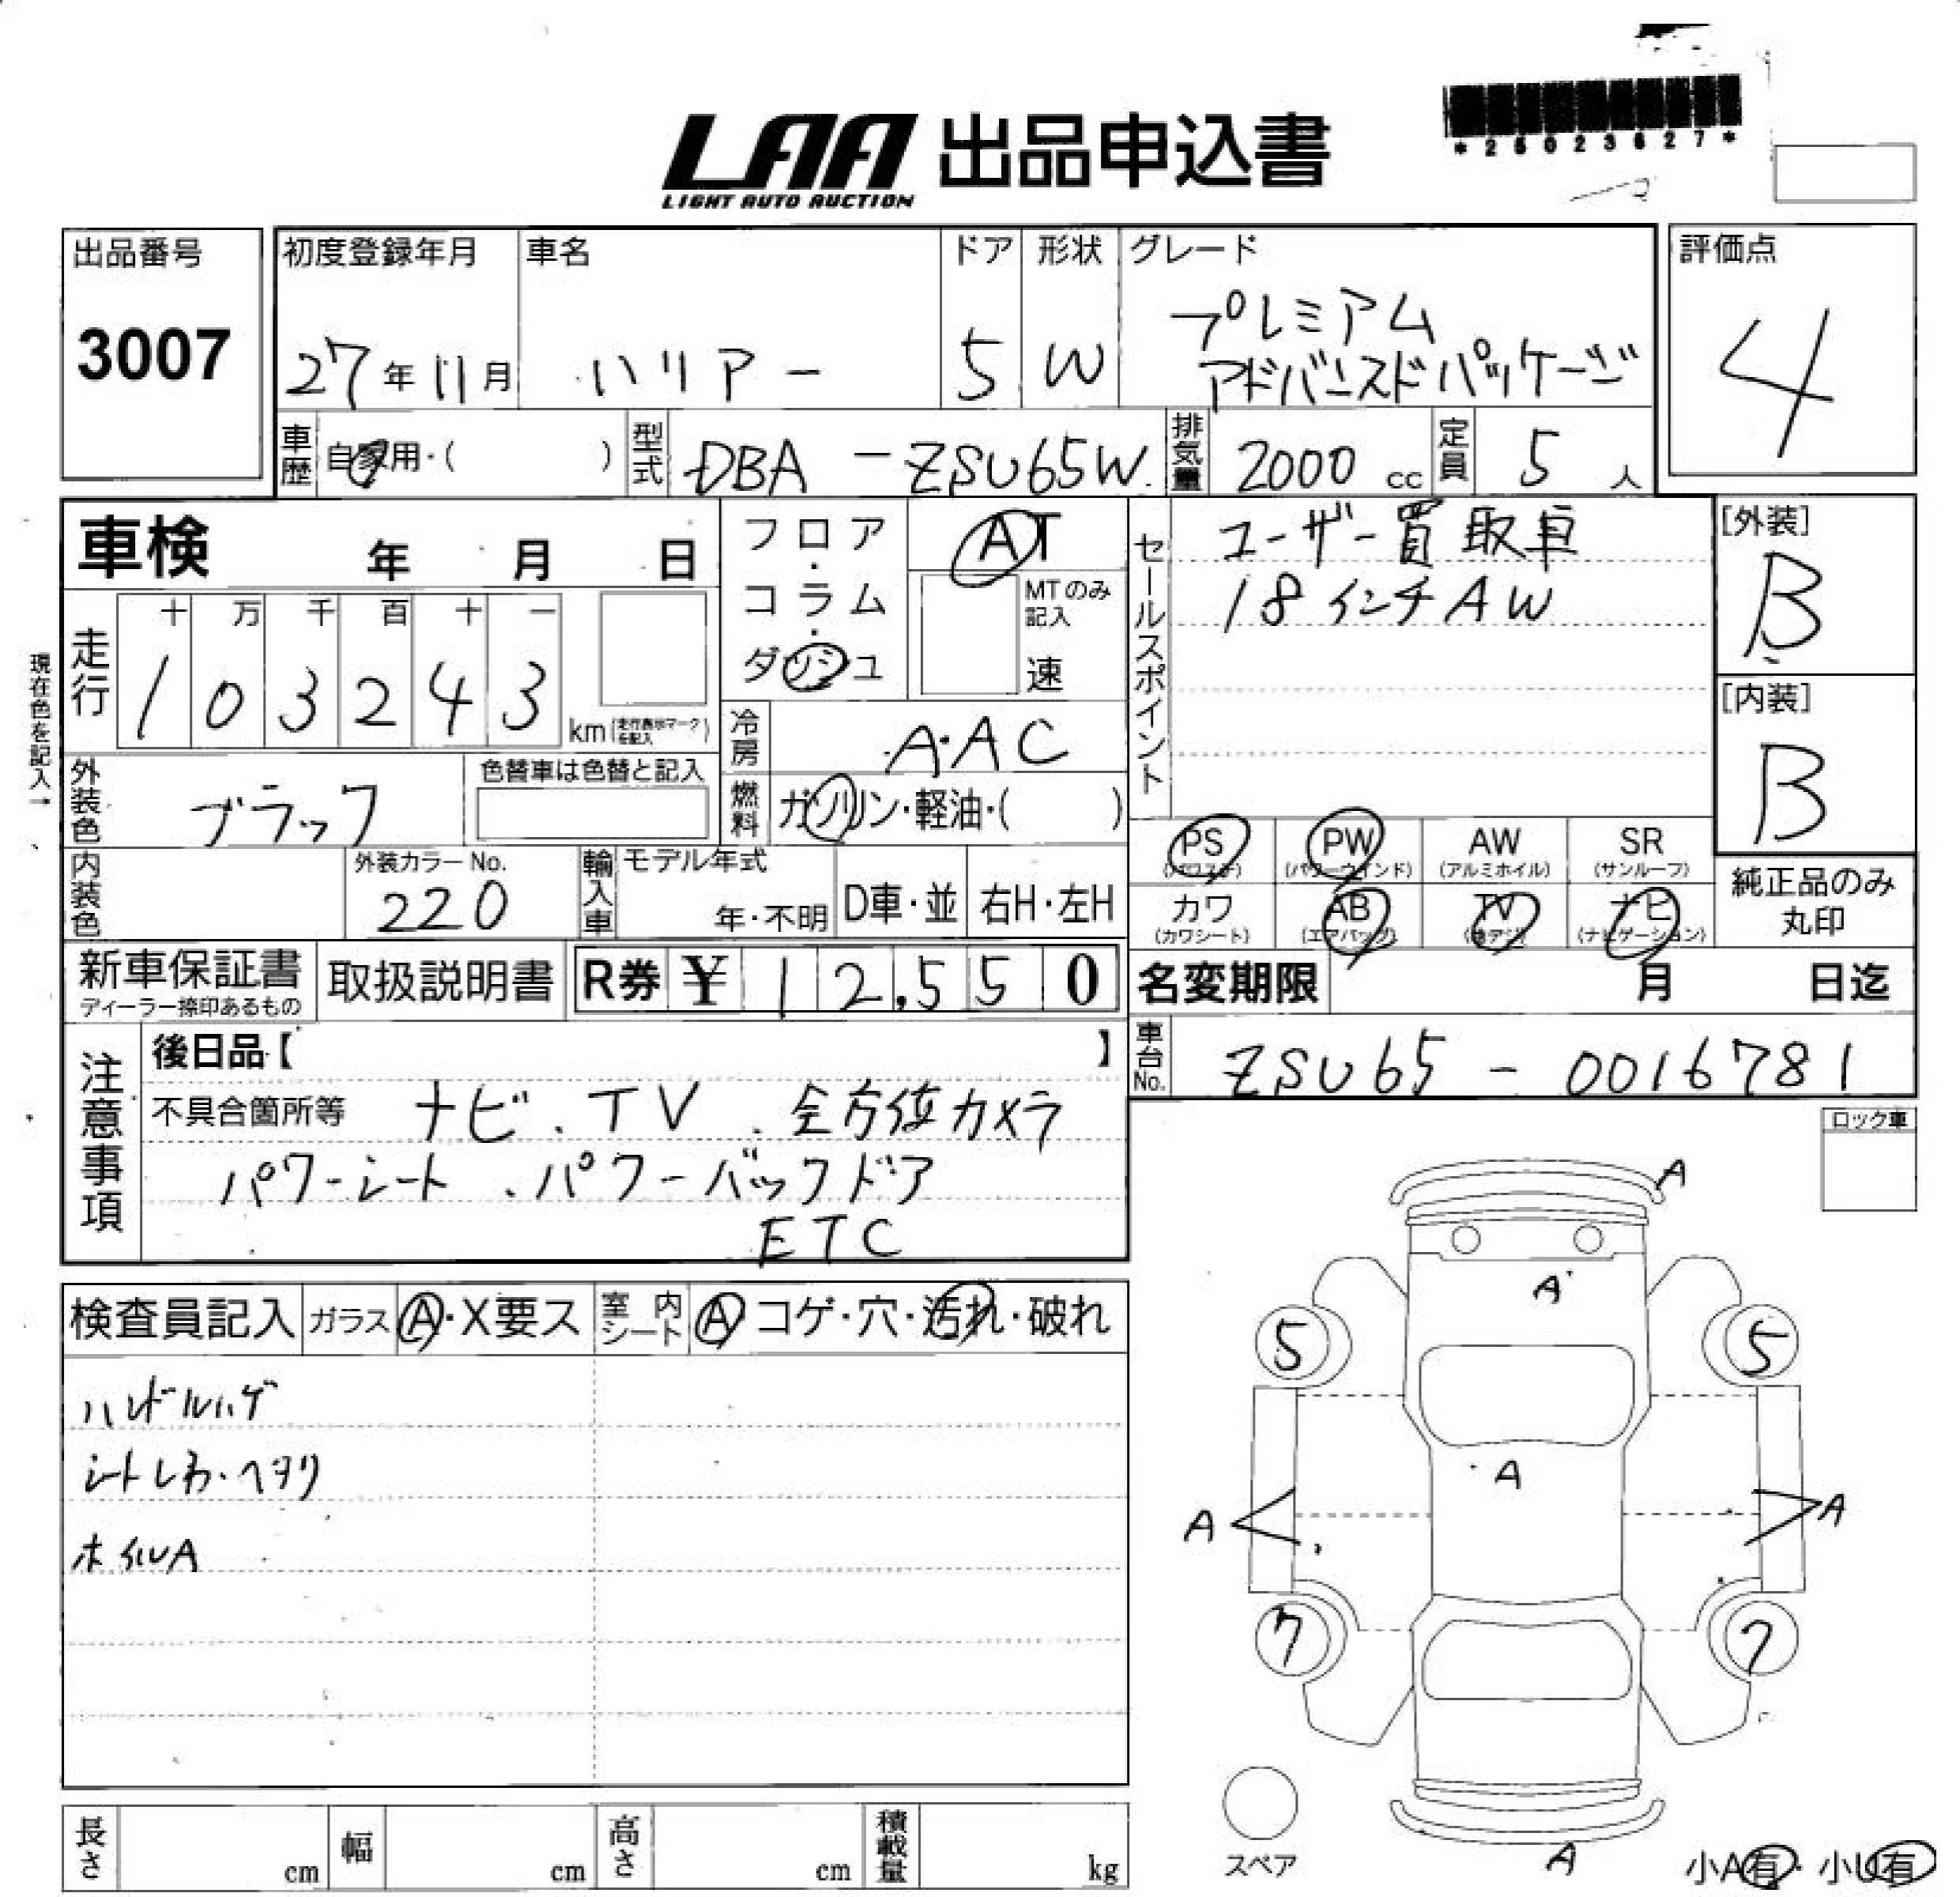 LAA 出品申込書
LIGHT AUTO AUCTION
*25023627*
出品番号
3007
初度登録年月
27年11月
車名
ハリアー
ドア
5
形状
W
グレード
プレミアム
アドバンスドパッケージ
評価点
4
車歴
自家用・( )
型式
DBA-ZSU65W
排気量
2000 cc
定員
5 人
車検 年 月 日
走行
十 万 千 百 十 一
1 0 3 2 4 3
km(走行表示マークを記入)
現在色を記入→
フロア・コラム・ダッシュ
AT
MTのみ記入
速
冷房
A・AC
燃料
ガソリン・軽油・( )
外装色
ブラック
色替車は色替と記入
内装色
外装カラーNo.
220
輸入車
モデル年式
年・不明
D車・並
右H・左H
セールスポイント
ユーザー買取車
18インチAW
[外装]
B
[内装]
B
PS
(パワステ)
PW
(パワーウインド)
AW
(アルミホイル)
SR
(サンルーフ)
カワ
(カワシート)
AB
(エアバッグ)
TV
(地デジ)
ナビ
(ナビゲーション)
純正品のみ
丸印
新車保証書
ディーラー捺印あるもの
取扱説明書
R券 ¥12,550
名変期限 月 日迄
車台No.
ZSU65-0016781
注意事項
後日品【 】
不具合箇所等 ナビ、TV、全方位カメラ
パワーシート、パワーバックドア
ETC
ロック車
検査員記入
ガラス
A・X要ス
室内シート
A コゲ・穴・汚れ・破れ
ハンドルハゲ
シートしわ・ヘタリ
ホイルA
A
A
5
5
A
A
A
7
7
A
スペア
小A有・小U有
長さ cm
幅 cm
高さ cm
積載量 kg